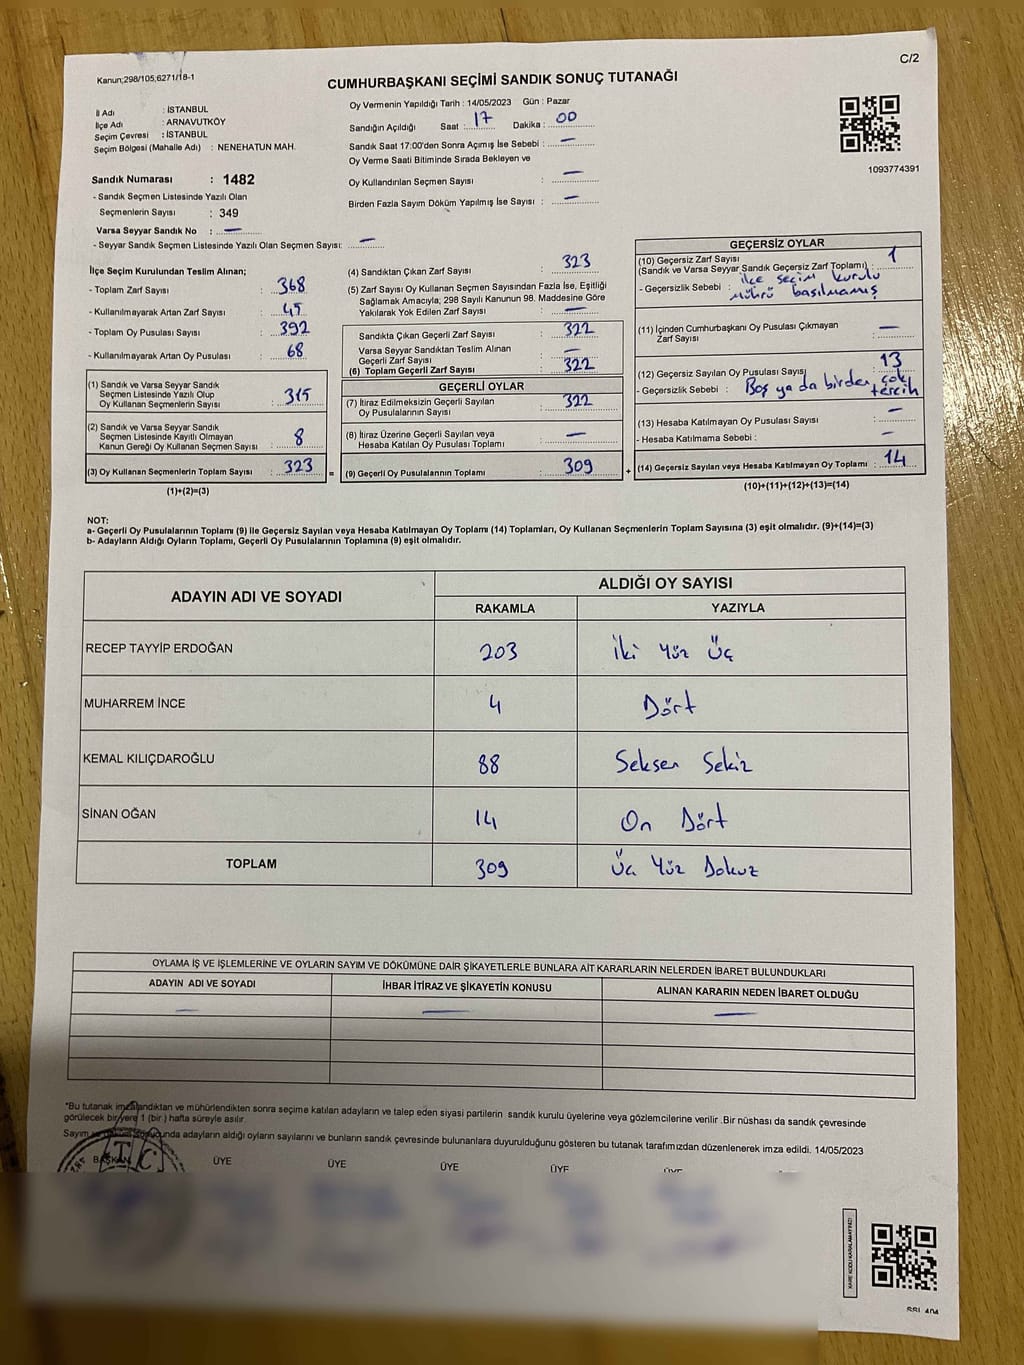 Kanun;298/105;6271/18-1
C/2
CUMHURBAŞKANI SEÇİMİ SANDIK SONUÇ TUTANAĞI
İl Adı : İSTANBUL
İlçe Adı : ARNAVUTKÖY
Seçim Çevresi : İSTANBUL
Seçim Bölgesi (Mahalle Adı) : NENEHATUN MAH.
Oy Vermenin Yapıldığı Tarih : 14/05/2023 Gün : Pazar
Sandığın Açıldığı Saat : 17 Dakika : 00
Sandık Saat 17:00'den Sonra Açımış İse Sebebi : —
Oy Verme Saati Bitiminde Sırada Bekleyen ve
Oy Kullandırılan Seçmen Sayısı : —
Birden Fazla Sayım Döküm Yapılmış İse Sayısı : —
1093774391
Sandık Numarası : 1482
- Sandık Seçmen Listesinde Yazılı Olan
Seçmenlerin Sayısı : 349
Varsa Seyyar Sandık No : —
- Seyyar Sandık Seçmen Listesinde Yazılı Olan Seçmen Sayısı: —
İlçe Seçim Kurulundan Teslim Alınan;
- Toplam Zarf Sayısı : 368
- Kullanılmayarak Artan Zarf Sayısı : 45
- Toplam Oy Pusulası Sayısı : 392
- Kullanılmayarak Artan Oy Pusulası : 68
(1) Sandık ve Varsa Seyyar Sandık
Seçmen Listesinde Yazılı Olup
Oy Kullanan Seçmenlerin Sayısı : 315
(2) Sandık ve Varsa Seyyar Sandık
Seçmen Listesinde Kayıtlı Olmayan
Kanun Gereği Oy Kullanan Seçmen Sayısı : 8
(3) Oy Kullanan Seçmenlerin Toplam Sayısı : 323 =
(1)+(2)=(3)
(4) Sandıktan Çıkan Zarf Sayısı : 323
(5) Zarf Sayısı Oy Kullanan Seçmen Sayısından Fazla İse, Eşitliği
Sağlamak Amacıyla; 298 Sayılı Kanunun 98. Maddesine Göre
Yakılarak Yok Edilen Zarf Sayısı : —
Sandıkta Çıkan Geçerli Zarf Sayısı : 322
Varsa Seyyar Sandıktan Teslim Alınan
Geçerli Zarf Sayısı : —
(6) Toplam Geçerli Zarf Sayısı : 322
GEÇERLİ OYLAR
(7) İtiraz Edilmeksizin Geçerli Sayılan
Oy Pusulalarının Sayısı : 322
(8) İtiraz Üzerine Geçerli Sayılan veya
Hesaba Katılan Oy Pusulası Toplamı : —
(9) Geçerli Oy Pusulalarının Toplamı : 309 +
GEÇERSİZ OYLAR
(10) Geçersiz Zarf Sayısı
(Sandık ve Varsa Seyyar Sandık Geçersiz Zarf Toplamı) : 1
- Geçersizlik Sebebi : ilçe seçim kurulu
mührü basılmamış
(11) İçinden Cumhurbaşkanı Oy Pusulası Çıkmayan
Zarf Sayısı : —
(12) Geçersiz Sayılan Oy Pusulası Sayısı : 13
- Geçersizlik Sebebi : Boş ya da birden çok
tercih
(13) Hesaba Katılmayan Oy Pusulası Sayısı : —
- Hesaba Katılmama Sebebi : —
(14) Geçersiz Sayılan veya Hesaba Katılmayan Oy Toplamı : 14
(10)+(11)+(12)+(13)=(14)
NOT:
a- Geçerli Oy Pusulalarının Toplamı (9) ile Geçersiz Sayılan veya Hesaba Katılmayan Oy Toplamı (14) Toplamları, Oy Kullanan Seçmenlerin Toplam Sayısına (3) eşit olmalıdır. (9)+(14)=(3)
b- Adayların Aldığı Oyların Toplamı, Geçerli Oy Pusulalarının Toplamına (9) eşit olmalıdır.
ADAYIN ADI VE SOYADI ALDIĞI OY SAYISI
RAKAMLA YAZIYLA
RECEP TAYYİP ERDOĞAN 203 İki Yüz Üç
MUHARREM İNCE 4 Dört
KEMAL KILIÇDAROĞLU 88 Seksen Sekiz
SİNAN OĞAN 14 On Dört
TOPLAM 309 Üç Yüz Dokuz
OYLAMA İŞ VE İŞLEMLERİNE VE OYLARIN SAYIM VE DÖKÜMÜNE DAİR ŞİKAYETLERLE BUNLARA AİT KARARLARIN NELERDEN İBARET BULUNDUKLARI
ADAYIN ADI VE SOYADI İHBAR İTİRAZ VE ŞİKAYETİN KONUSU ALINAN KARARIN NEDEN İBARET OLDUĞU
— — —
*Bu tutanak imzalandıktan ve mühürlendikten sonra seçime katılan adayların ve talep eden siyasi partilerin sandık kurulu üyelerine veya gözlemcilerine verilir .Bir nüshası da sandık çevresinde
görülecek bir yere 1 (bir.) hafta süreyle asılır.
Sayım ve döküm sonucunda adayların aldığı oyların sayılarını ve bunların sandık çevresinde bulunanlara duyurulduğunu gösteren bu tutanak tarafımızdan düzenlenerek imza edildi. 14/05/2023
BAŞKAN ÜYE ÜYE ÜYE ÜYE ÜYE
T.C.
KARE KODU KARALAMAYINIZ!